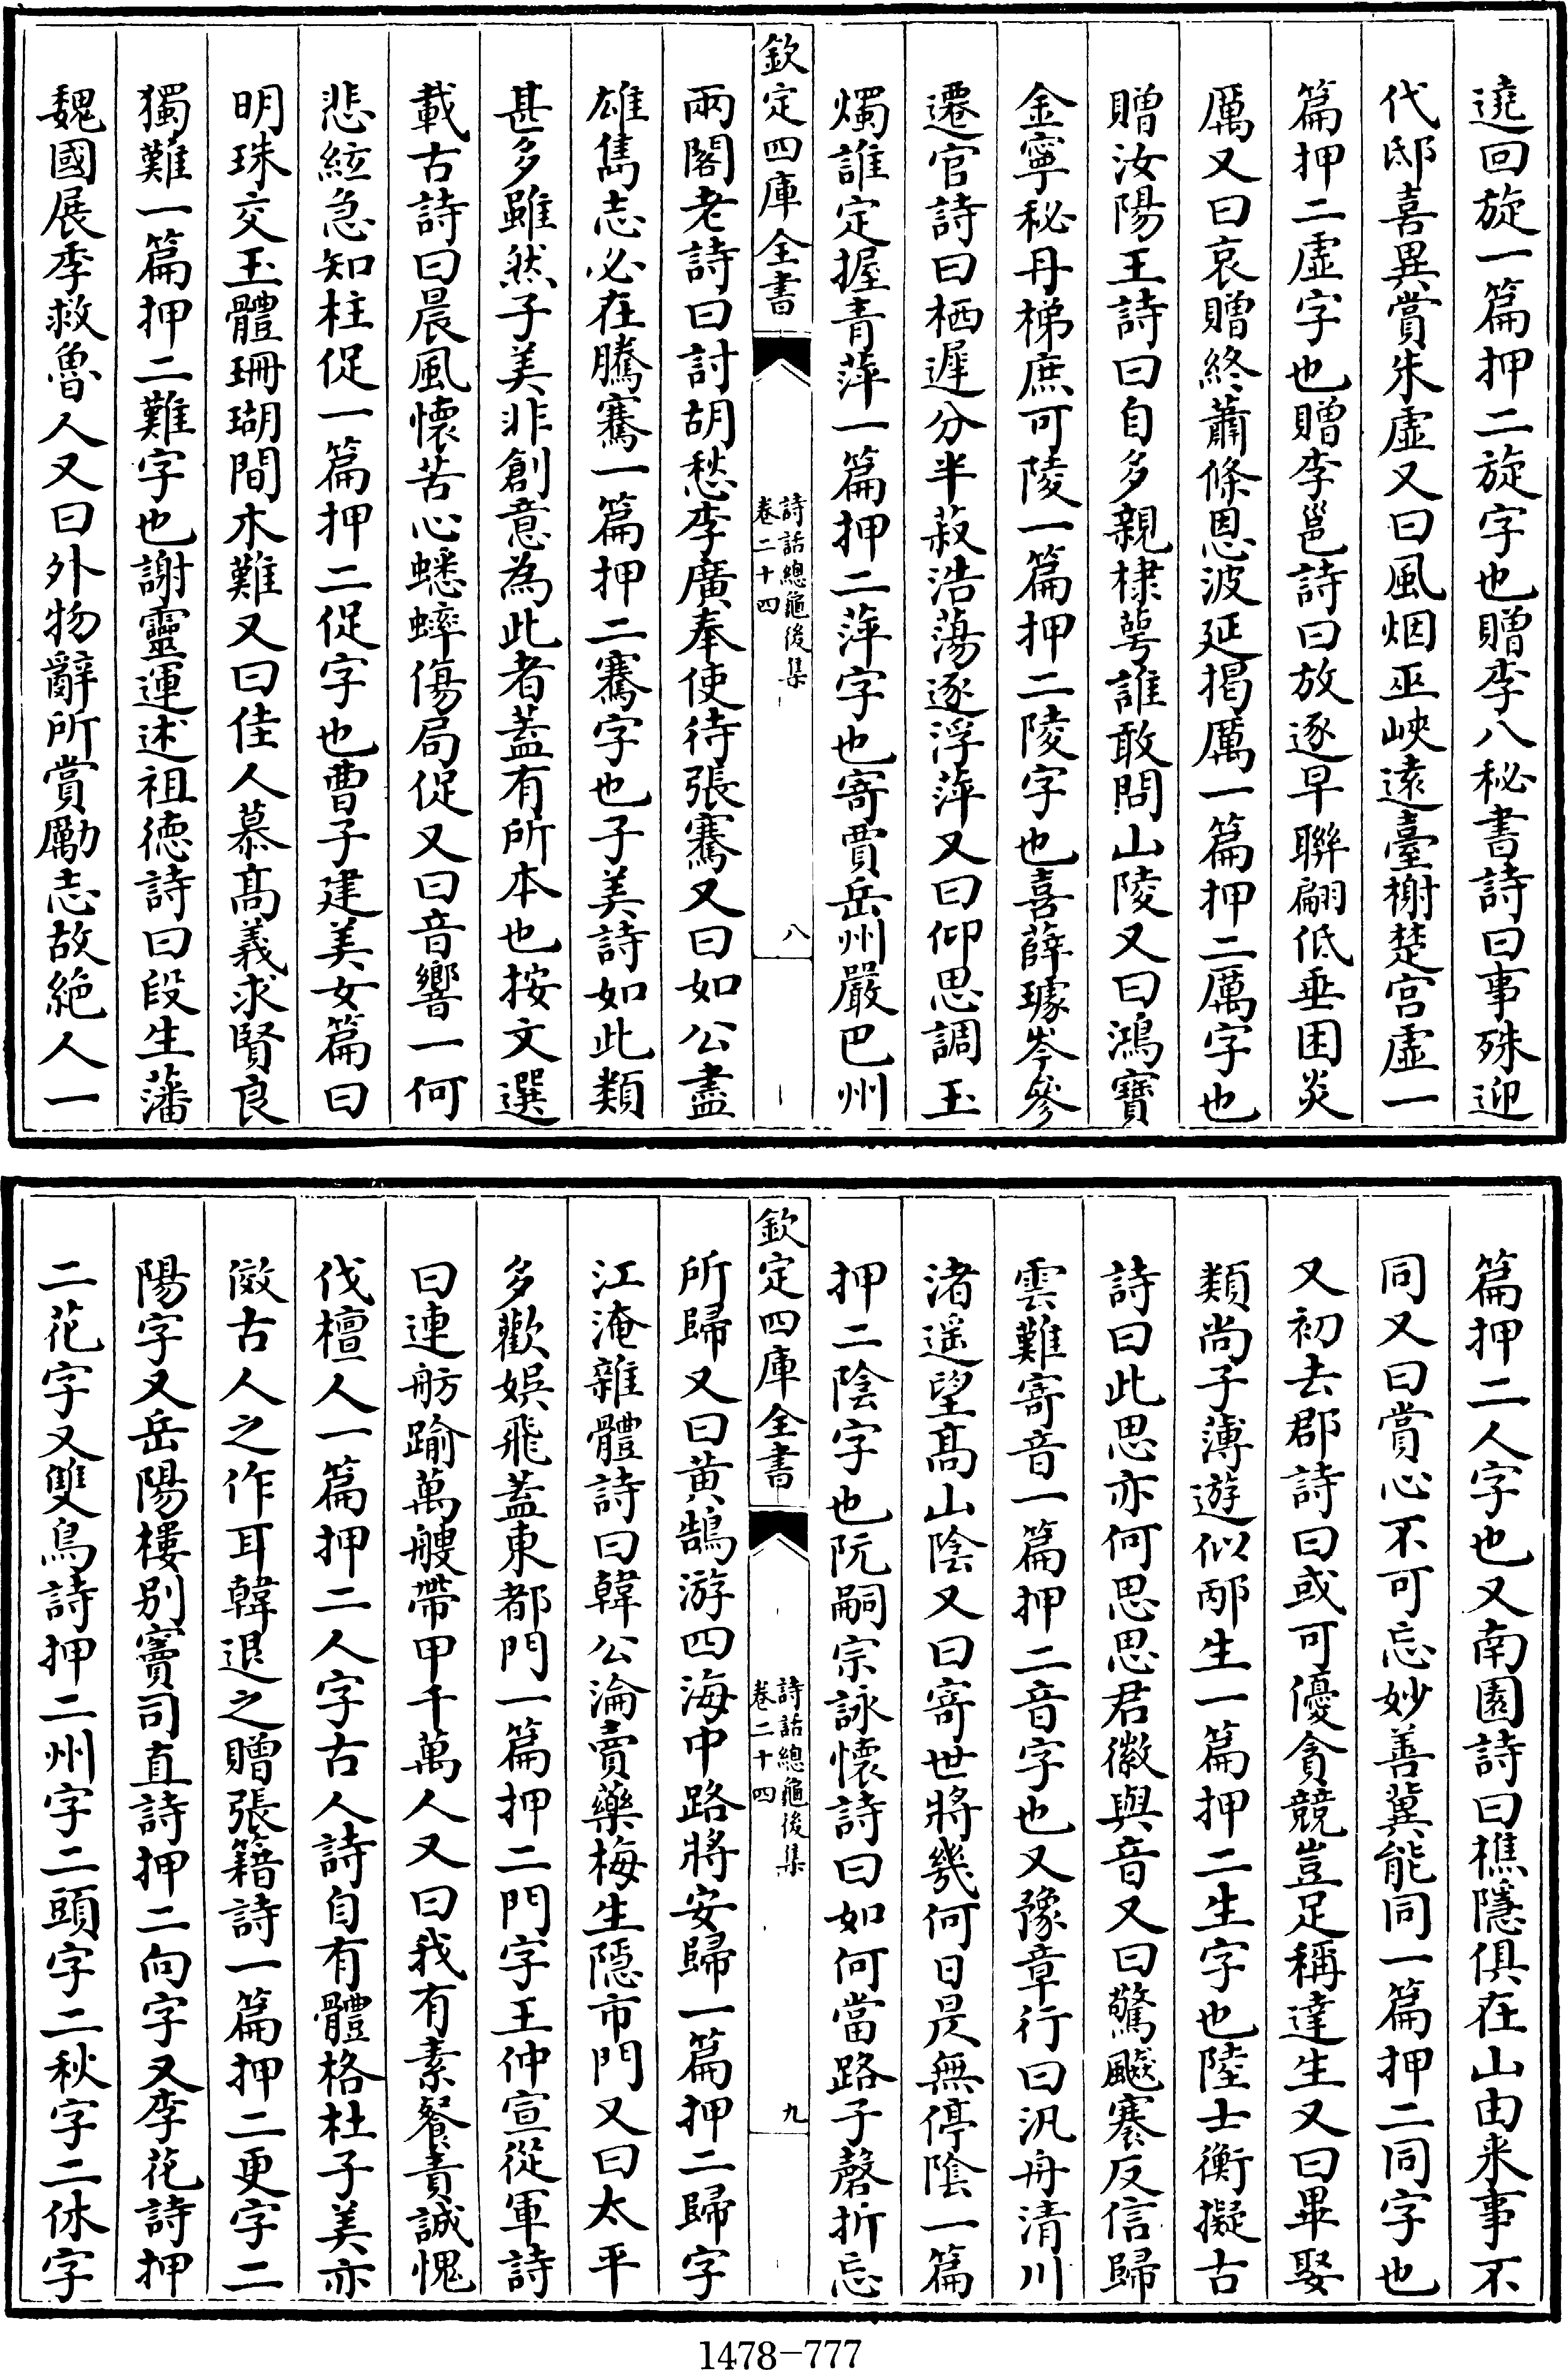 遶回旋一篇押二旋字也贈李八秘書詩曰事殊迎
代邸喜異賞朱虛又曰風烟巫峽遠臺榭楚宮虛一
篇押二虛字也贈李邕詩曰放逐早聯翩低垂困炎
厲又曰哀贈終蕭條恩波延揭厲一篇押二厲字也
贈汝陽王詩曰自多親棣萼誰敢問山陵又曰鴻寶
金寧秘丹梯庶可陵一篇押二陵字也喜薛璩岑參
遷官詩曰栖遲分半菽浩蕩逐浮萍又曰仰思調玉
燭誰定握青萍一篇押二萍字也寄賈岳州嚴巴州
欽定四庫全書
詩話總龜後集
卷二十四
八
兩閣老詩曰討胡愁李廣奉使待張騫又曰如公盡
雄雋志必在騰騫一篇押二騫字也子美詩如此類
甚多雖然子美非創意為此者蓋有所本也按文選
載古詩曰晨風懷苦心蟋蟀傷局促又曰音響一何
悲絃急知柱促一篇押二促字也曹子建美女篇曰
明珠交玉體珊瑚間木難又曰佳人慕高義求賢良
獨難一篇押二難字也謝靈運述祖徳詩曰段生藩
魏國展季救魯人又曰外物辭所賞勵志故絕人一
篇押二人字也又南園詩曰樵隱俱在山由来事不
同又曰賞心不可忘妙善冀能同一篇押二同字也
又初去郡詩曰或可優貪競豈足稱達生又曰畢娶
類尚子薄遊似邴生一篇押二生字也陸士衡擬古
詩曰此思亦何思思君徽與音又曰驚飈褰反信歸
雲難寄音一篇押二音字也又豫章行曰汎舟清川
渚遥望高山陰又曰寄世將幾何日昃無停陰一篇
押二陰字也阮嗣宗詠懷詩曰如何當路子磬折忘
欽定四庫全書
詩話總龜後集
卷二十四
九
所歸又曰黄鵠游四海中路將安歸一篇押二歸字
江淹雜體詩曰韓公淪賣藥梅生隱市門又曰太平
多歡娛飛蓋東都門一篇押二門字王仲宣從軍詩
曰連舫踰萬艘帶甲千萬人又曰我有素餐責誠愧
伐檀人一篇押二人字古人詩自有體格杜子美亦
傚古人之作耳韓退之贈張籍詩一篇押二更字二
陽字又岳陽樓别竇司直詩押二向字又李花詩押
二花字又雙鳥詩押二州字二頭字二秋字二休字
1478-777